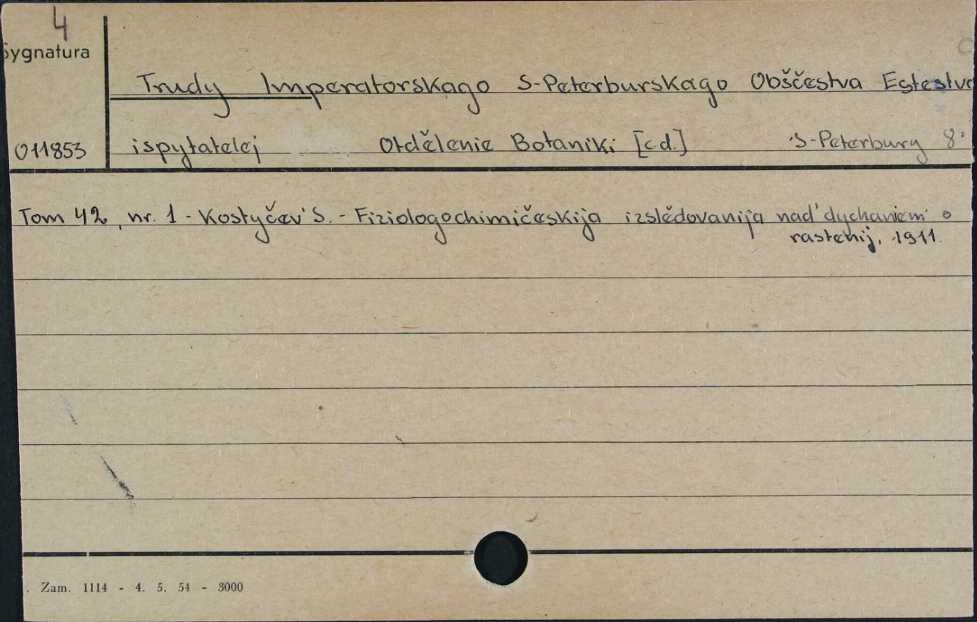 4
Sygnatura
Trudy Imperatorskago S-Peterburskago Obščestva Estestvo
011853 ispytatelej Otdělenie Botaniki [c.d.] S-Peterburg 8°
Tom 42, nr. 1 - Kostyčev' S. - Fiziologochimičeskija izslědovanija nad' dychaniem'
rastenij. 1911.
Zam. 1114 - 4. 5. 54 - 3000